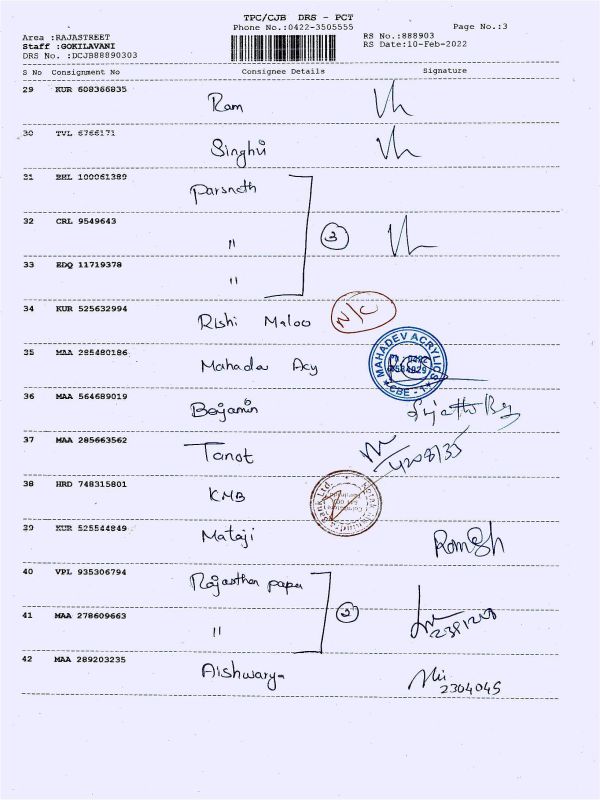 TPC/CJB DRS - PCT
Phone No.:0422-3505555
Page No.:3
Area :RAJASTREET
Staff :GOKILAVANI
DRS No. :DCJB88890303
RS No.:888903
RS Date:10-Feb-2022
S No Consignment No Consignee Details Signature
29 KUR 608366835 Ram
30 TVL 6766171 Singhvi
31 BHL 100061389 Parsneth
32 CRL 9549643 " 3
33 EDQ 11719378 "
34 KUR 525632994 Rishi Maloo N/C
35 MAA 285480186 Mahadev Acy
MAHADEV ACRYLICS
CBE - 1
36 MAA 564689019 Benjamin
37 MAA 285663562 Tanot
38 HRD 748315801 KMB
Bank Ltd.
39 KUR 525544849 Mataji Romesh
40 VPL 935306794 Rajasthan paper
41 MAA 278609663 " 2
42 MAA 289203235 Aishwarya
2304045